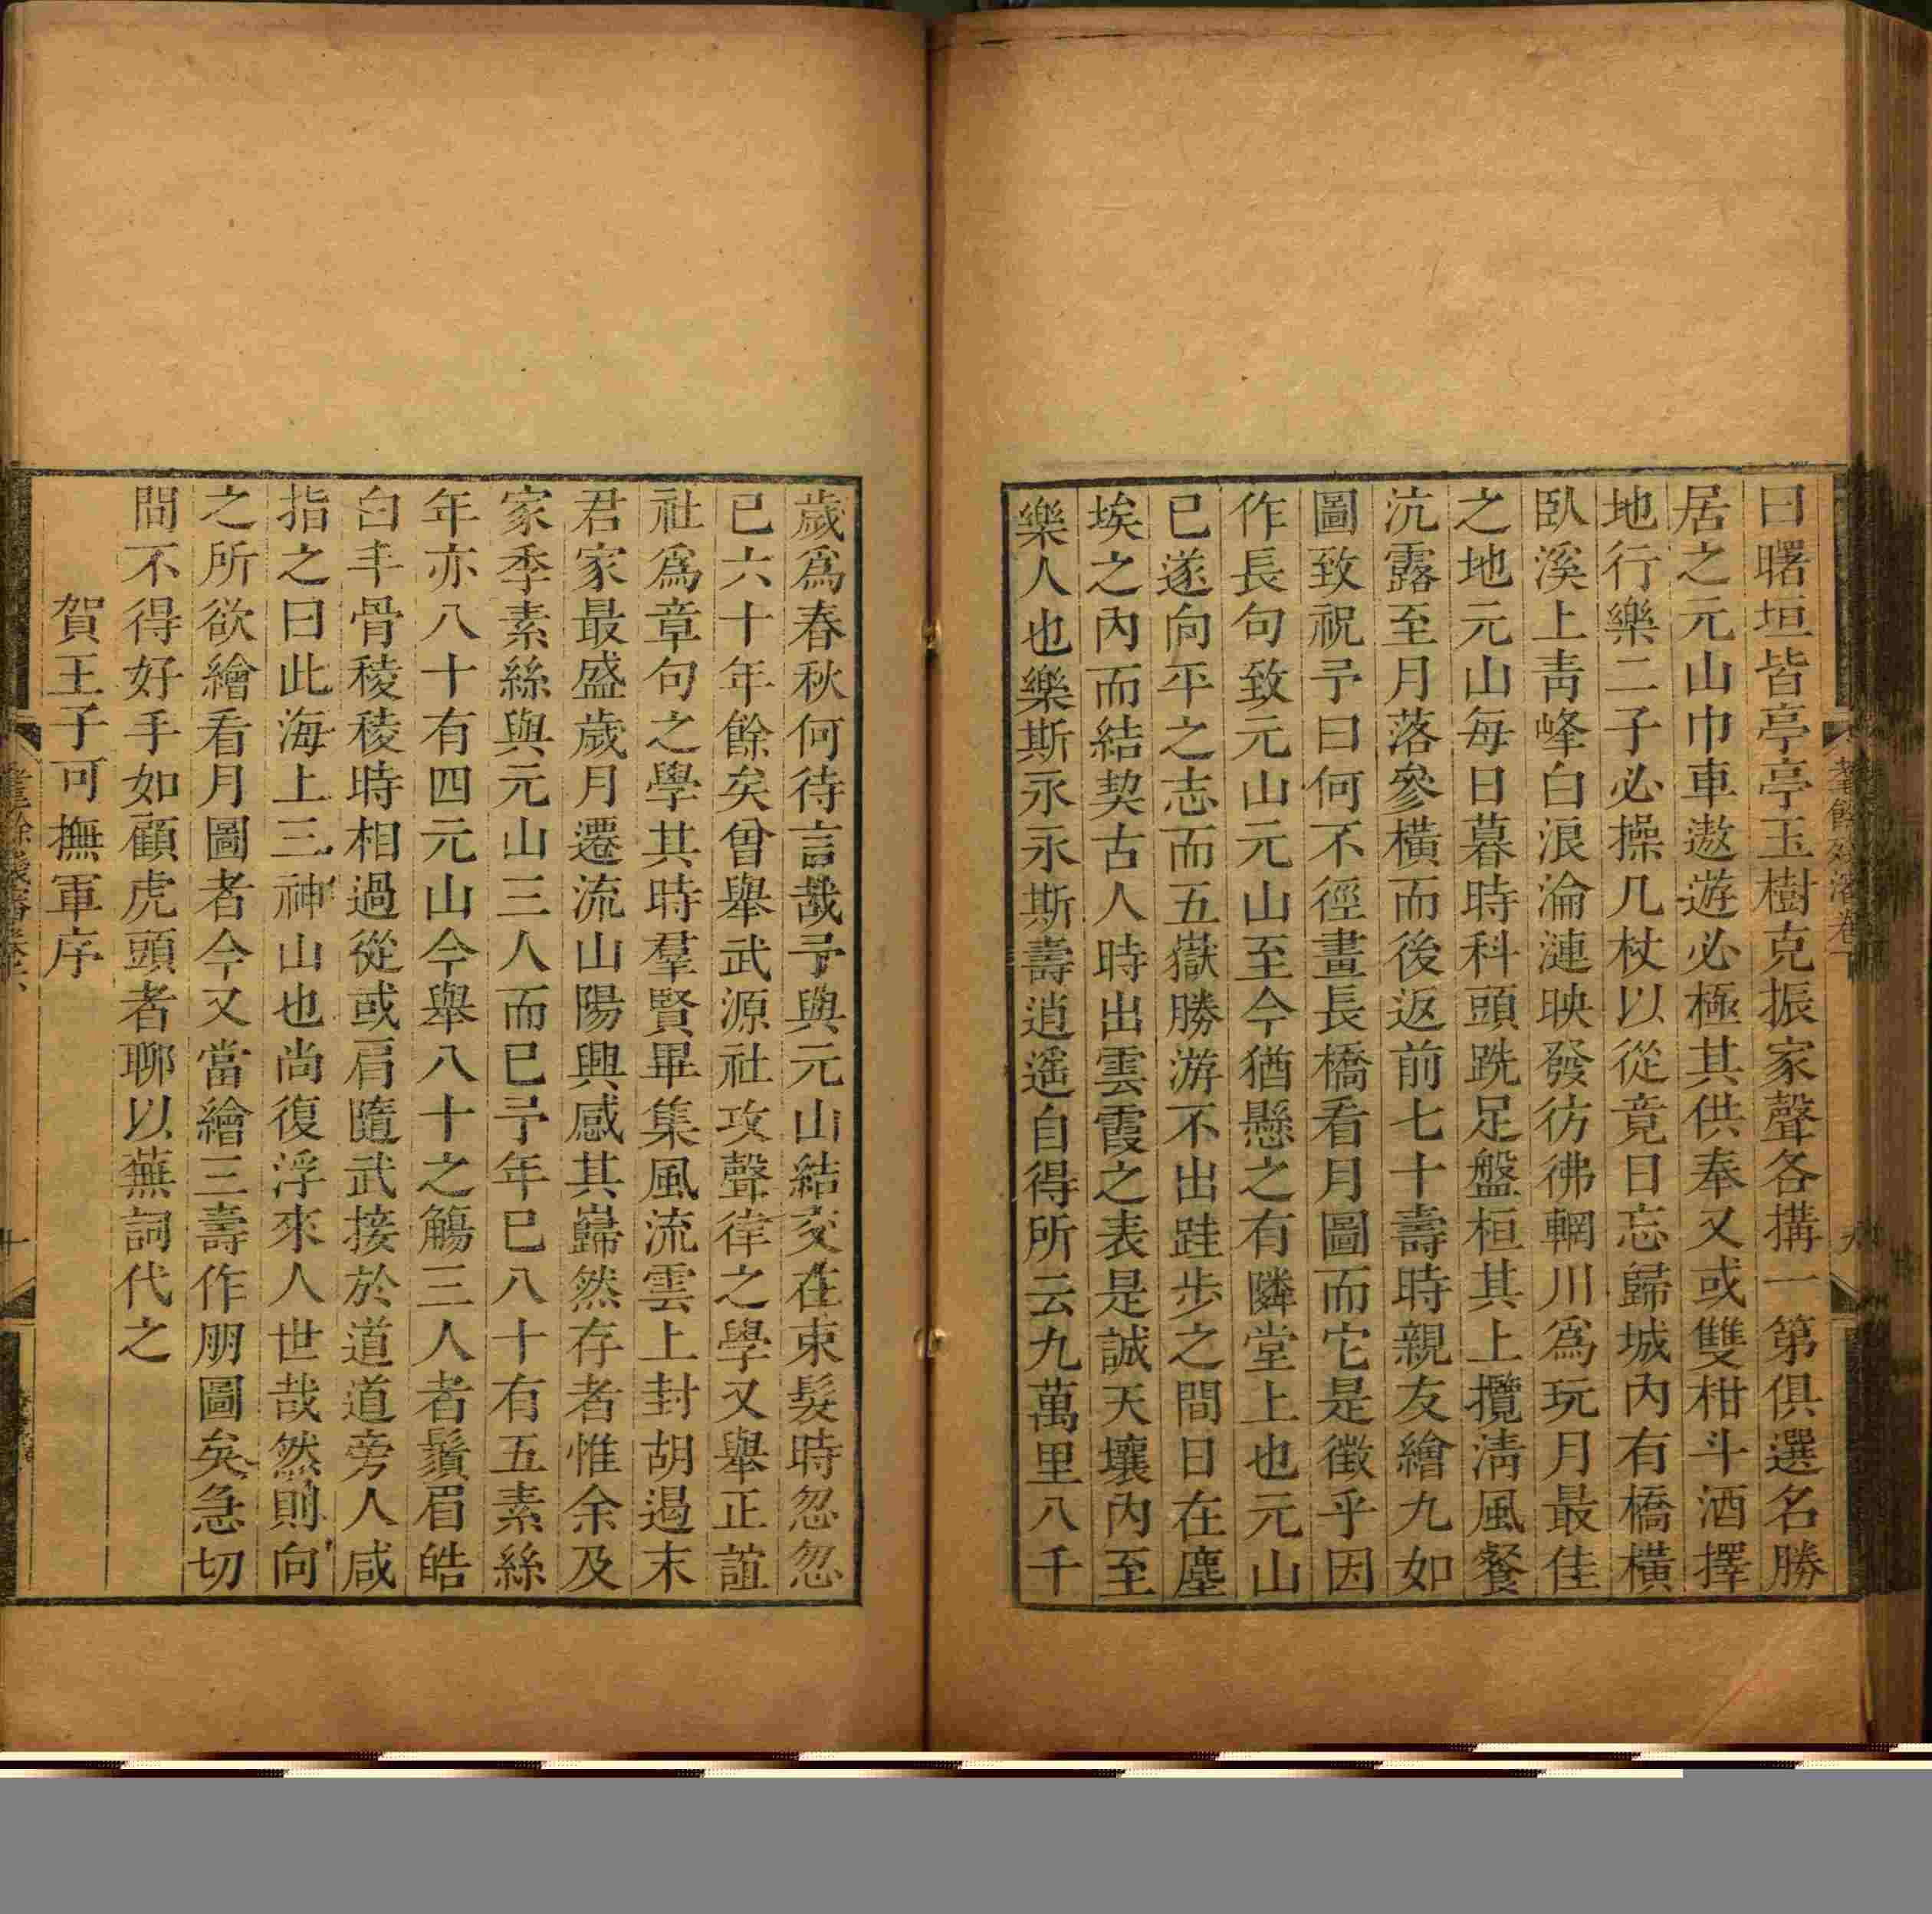 曰曙垣皆亭亭玉樹克振家聲各搆一第俱選名勝
居之元山巾車遨遊必極其供奉又或雙柑斗酒擇
地行樂二子必操几杖以從竟日忘歸城內有橋橫
臥溪上靑峰白浪淪漣映發彷彿輞川爲玩月最佳
之地元山每日暮時科頭跣足盤桓其上攬淸風餐
沆露至月落參橫而後返前七十壽時親友繪九如
圖致祝予曰何不徑畫長橋看月圖而它是徵乎因
作長句致元山元山至今猶懸之有隣堂上也元山
已遂向平之志而五嶽勝游不出跬步之間日在塵
埃之內而結契古人時出雲霞之表是誠天壤內至
樂人也樂斯永永斯壽逍遙自得所云九萬里八千
歲爲春秋何待言哉予與元山結交在束髮時忽忽
已六十年餘矣曾舉武源社攻聲律之學又舉正誼
社爲章句之學其時羣賢畢集風流雲上封胡遏末
君家最盛歲月遷流山陽興感其巋然存者惟余及
家季素絲與元山三人而已予年已八十有五素絲
年亦八十有四元山今舉八十之觴三人者鬚眉皓
白丰骨稜稜時相過從或肩隨武接於道道旁人咸
指之曰此海上三神山也尚復浮來人世哉然則向
之所欲繪看月圖者今又當繪三壽作朋圖矣急切
間不得好手如顧虎頭者聊以蕪詞代之
賀王子可撫軍序